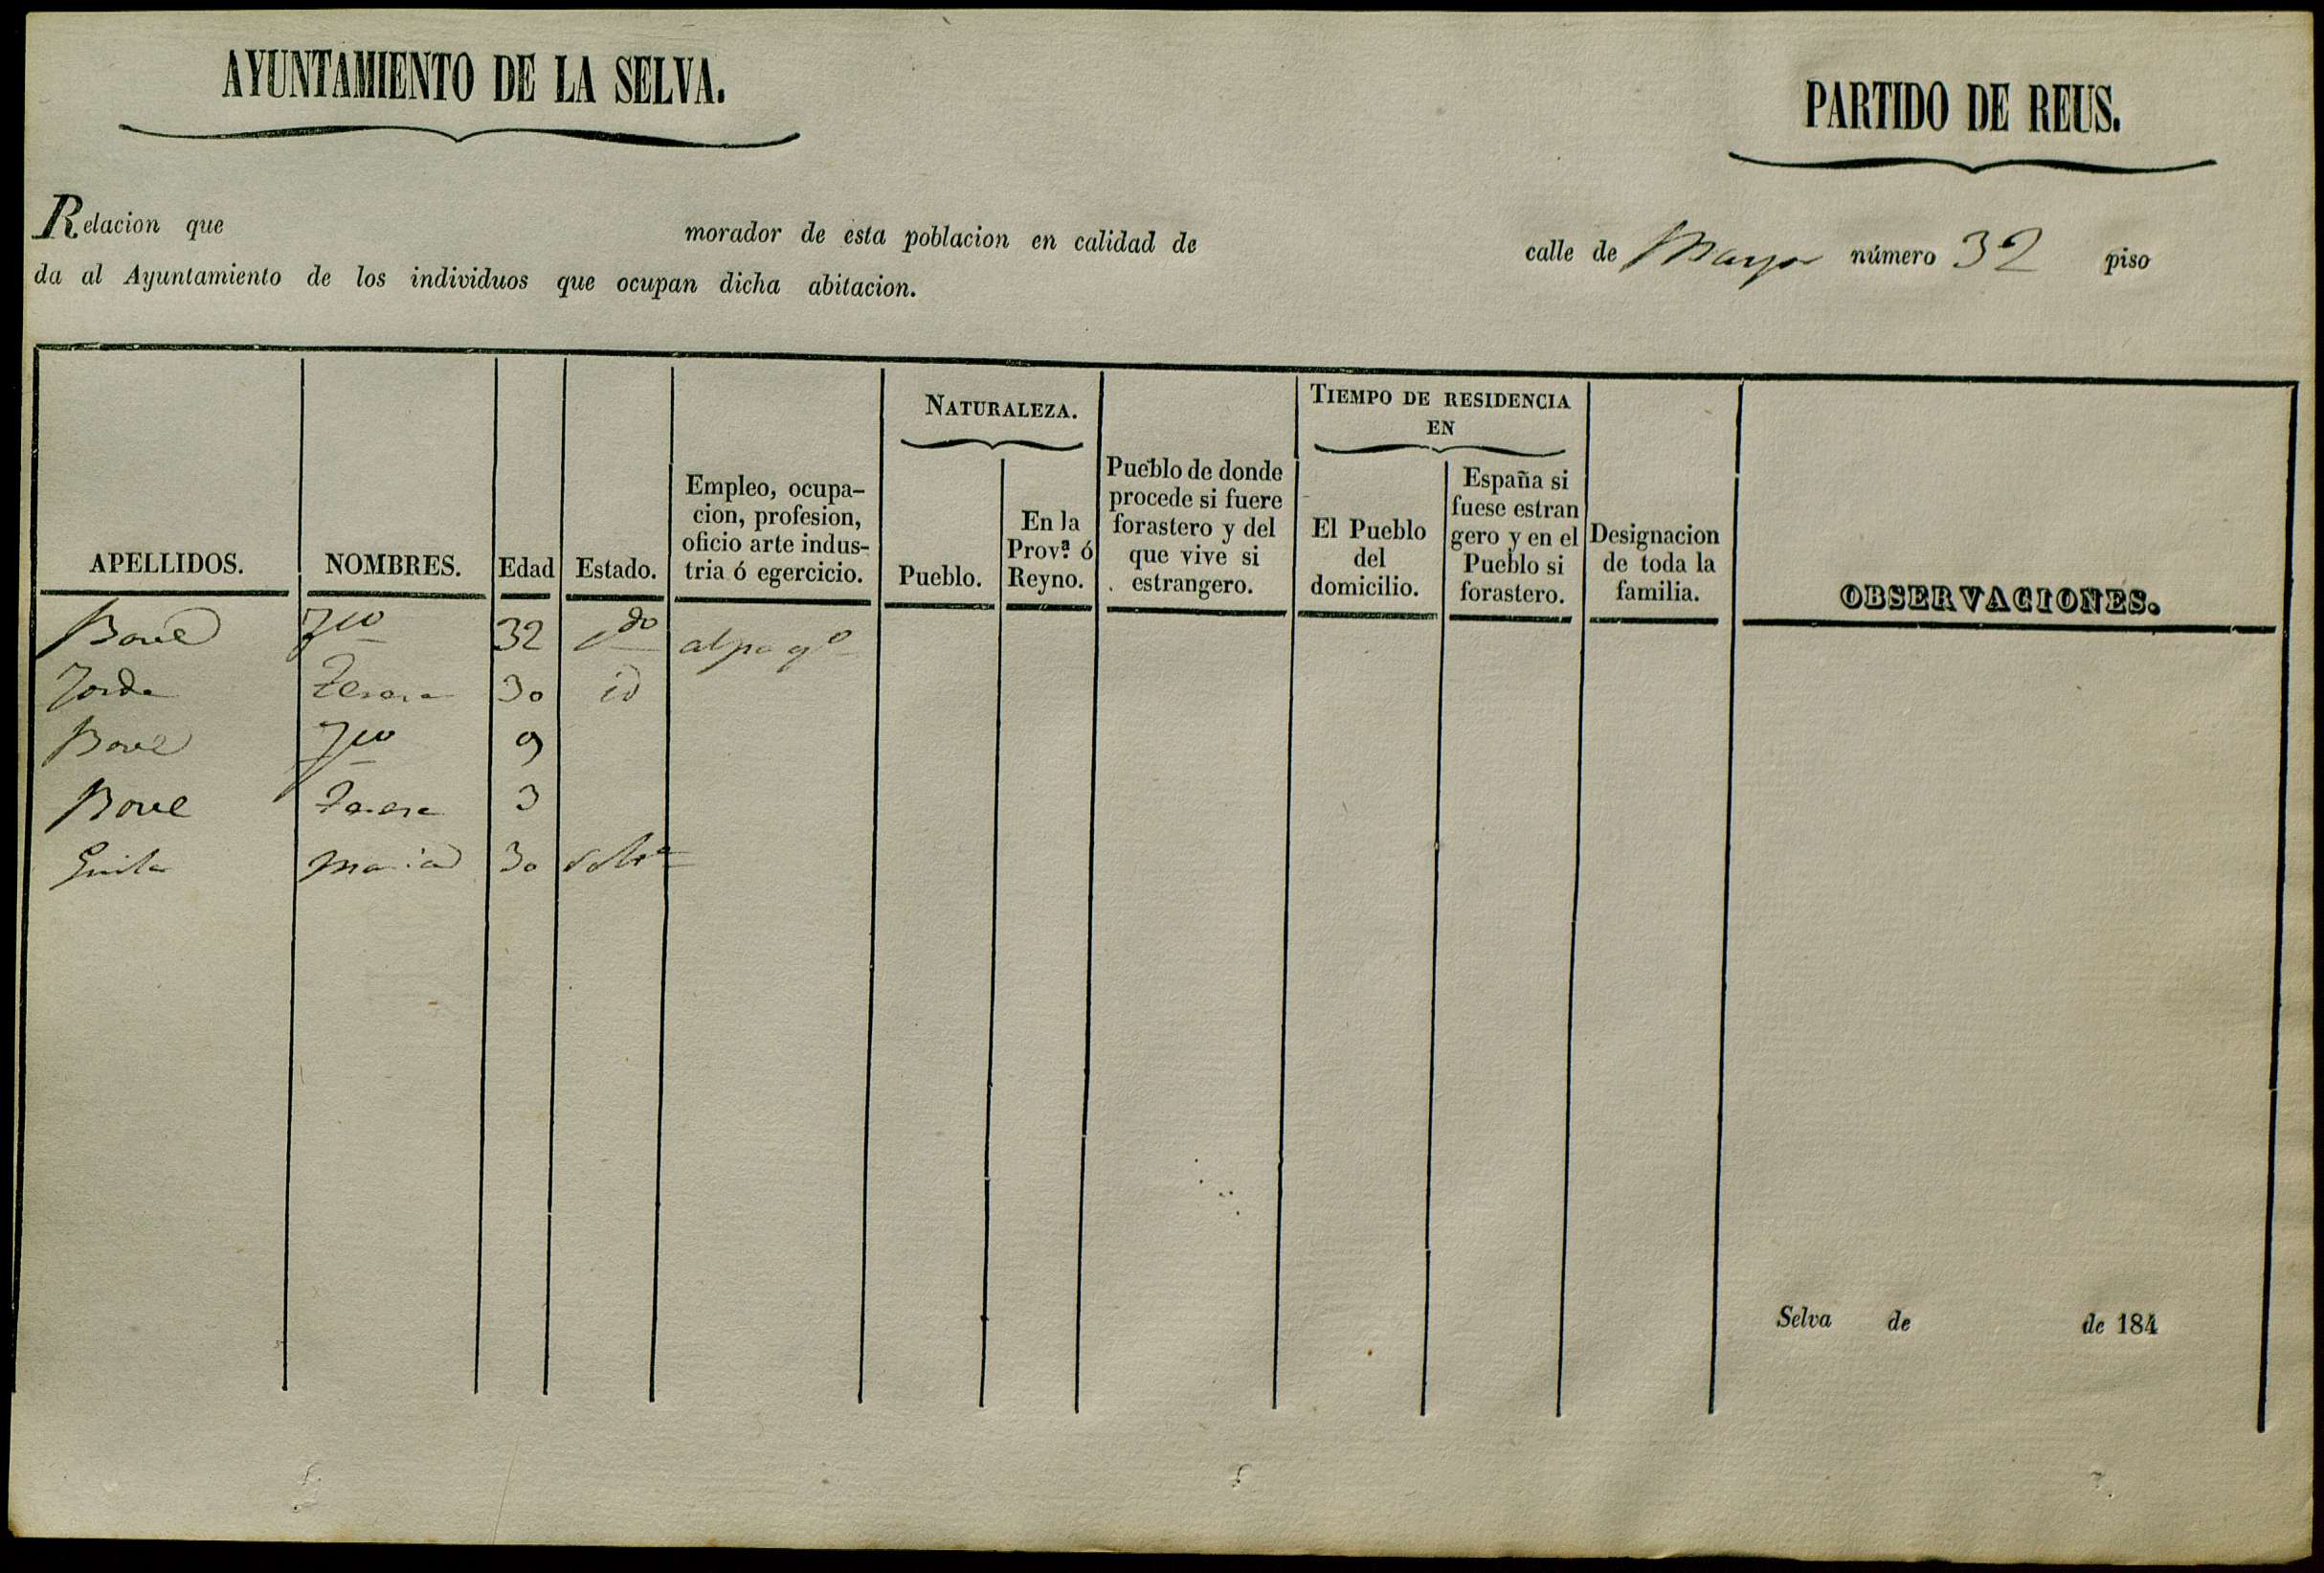 AYUNTAMIENTO DE LA SELVA.
PARTIDO DE REUS.
Relacion que morador de esta poblacion en calidad de calle de Mayor número 32 piso
da al Ayuntamiento de los individuos que ocupan dicha abitacion.
APELLIDOS.
NOMBRES.
Edad
Estado.
Empleo, ocupa-
cion, profesion,
oficio arte indus-
tria ó egercicio.
NATURALEZA.
Pueblo.
En la
Prov.ª ó
Reyno.
Pueblo de donde
procede si fuere
forastero y del
que vive si
estrangero.
TIEMPO DE RESIDENCIA
EN
El Pueblo
del
domicilio.
España si
fuese estran
gero y en el
Pueblo si
forastero.
Designacion
de toda la
familia.
OBSERVACIONES.
Bové 32 cdo
Jorda Teresa 30 id
Bové 9
Bové Teresa 3
Maria 30 solta
Selva de de 184